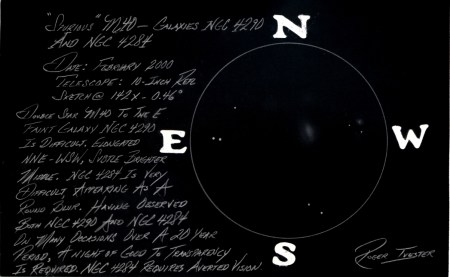 "Spurious" M40 – Galaxies NGC 4290
And NGC 4284
Date: February 2000
Telescope: 10-Inch Refl
Sketch @ 142x - 0.46°
Double Star M40 To The E
Faint Galaxy NGC 4290
Is Difficult, Elongated
NNE-WSW, Subtle Brighter
Middle. NGC 4284 Is Very
Difficult Appearing As A
Round Blur. Having Observed
Both NGC 4290 And NGC 4284
On Many Occasions Over A 20 Year
Period, A Night of Good To Transparency
Is Required. NGC 4284 Requires Averted Vision.
N
E
W
S
Roger Ivester